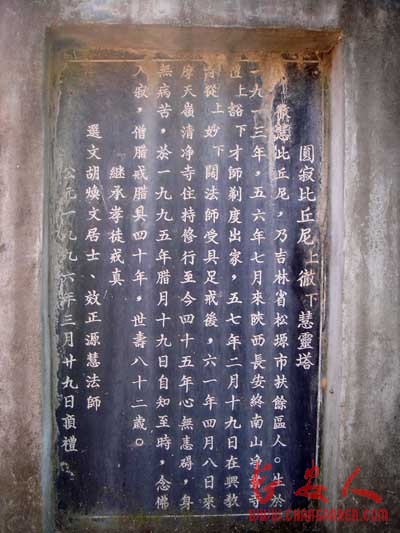 圓寂比丘尼上徹下慧靈塔
徹慧比丘尼，乃吉林省松源市扶餘區人。生於
一九一三年，五六年七月來陝西長安終南山净業寺
禮上豁下才師剃度出家，五七年二月十九日在興教
寺從上妙下闊法師受具足戒後，六一年四月八日來
摩天嶺清净寺住持修行至今四十五年心無恚碍，身
無病苦，於一九九五年腊月十九日自知至時，念佛
入寂，僧腊戒腊具四十年，世壽八十二歲。
繼承孝徒戒真
選文胡煥文居士、效正源慧法師
公元一九九六年三月廿九日頂禮
长安人